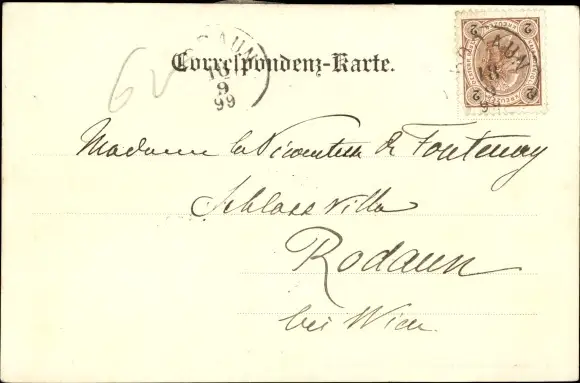 Correspondenz-Karte.
AUN
10
9
99
AUN
2
2
99
Madame la Vicomtesse de Fontenay
Schloss Villa
Rodaun
bei Wien.